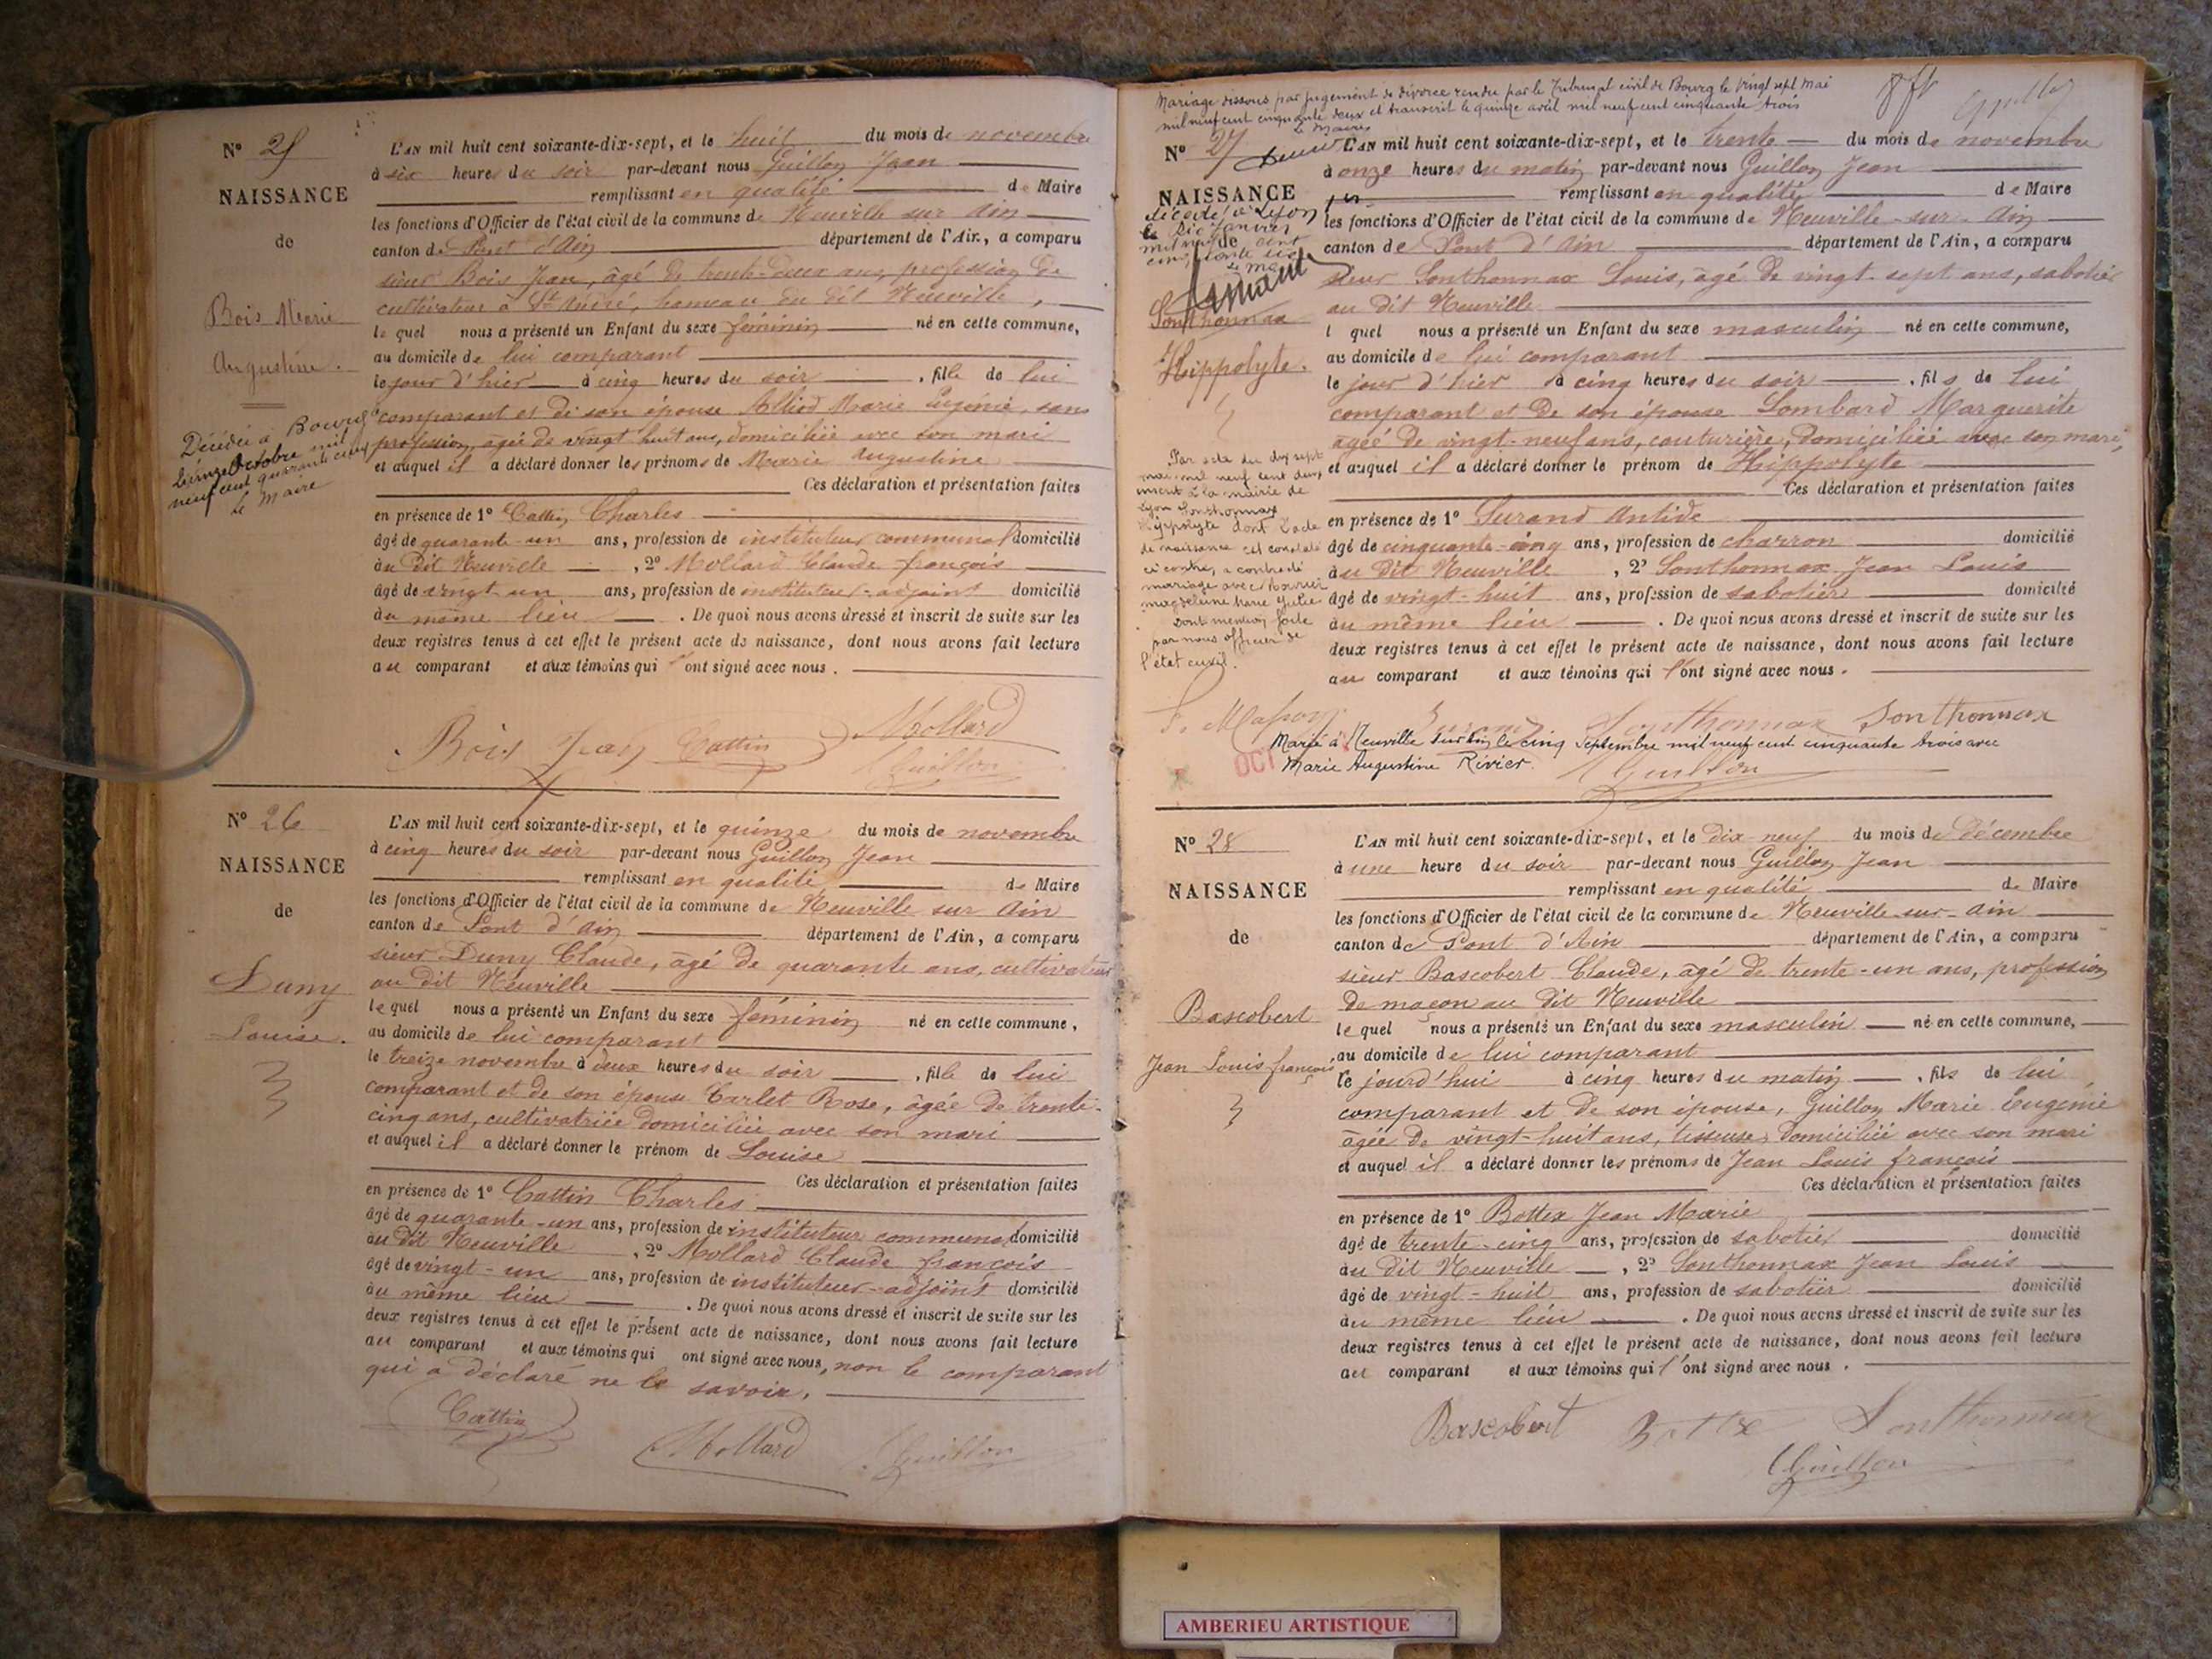 N° 25
NAISSANCE
de
Bois Marie
Augustine.
Décédée à Bourg
le onze Octobre mil
neuf cent quarante cinq
Le Maire
L'AN mil huit cent soixante-dix-sept, et le huit du mois de novembre
à six heures du soir par-devant nous Guillon Jean
remplissant en qualité de Maire
les fonctions d'Officier de l'état civil de la commune de Neuville sur Ain
canton de Pont d'Ain département de l'Ain, a comparu
sieur Bois Jean, âgé de trente-deux ans, profession de
cultivateur à St André, hameau du dit Neuville,
le quel nous a présenté un Enfant du sexe féminin né en cette commune,
au domicile de lui comparant
le jour d'hier à cinq heures du soir, fille de lui
comparant et de son épouse Alliod Marie Eugénie, sans
profession, agée de vingt huit ans, domiciliée avec son mari
et auquel il a déclaré donner les prénoms de Marie Augustine
Ces déclaration et présentation faites
en présence de 1° Cattin Charles
âgé de quarante-un ans, profession de instituteur communal domicilié
au dit Neuville, 2° Mollard Claude françois
âgé de vingt-un ans, profession de instituteur-adjoint domicilié
au même lieu. De quoi nous avons dressé et inscrit de suite sur les
deux registres tenus à cet effet le présent acte de naissance, dont nous avons fait lecture
au comparant et aux témoins qui l'ont signé avec nous.
Bois Jean Cattin Mollard
Guillon
N° 26
NAISSANCE
de
Duny
Louise.
L'AN mil huit cent soixante-dix-sept, et le quinze du mois de novembre
à cinq heures du soir par-devant nous Guillon Jean
remplissant en qualité de Maire
les fonctions d'Officier de l'état civil de la commune de Neuville sur Ain
canton de Pont d'Ain département de l'Ain, a comparu
sieur Duny Claude, âgé de quarante ans, cultivateur
au dit Neuville
le quel nous a présenté un Enfant du sexe féminin né en cette commune,
au domicile de lui comparant
le treize novembre à deux heures du soir, fille de lui
comparant et de son épouse Carlet Rose, âgée de trente-
cinq ans, cultivatrice domiciliée avec son mari
et auquel il a déclaré donner le prénom de Louise
Ces déclaration et présentation faites
en présence de 1° Cattin Charles
âgé de quarante-un ans, profession de instituteur communal domicilié
au dit Neuville, 2° Mollard Claude françois
âgé de vingt-un ans, profession de instituteur-adjoint domicilié
au même lieu. De quoi nous avons dressé et inscrit de suite sur les
deux registres tenus à cet effet le présent acte de naissance, dont nous avons fait lecture
au comparant et aux témoins qui ont signé avec nous, non le comparant
qui a déclaré ne le savoir.
Cattin
Mollard Guillon
Mariage dissous par jugement de divorce rendu par le Tribunal civil de Bourg le vingt sept Mai
mil neuf cent cinquante deux et transcrit le quinze avril mil neuf cent cinquante trois
Le Maire
N° 27
NAISSANCE
de
décédé à Lyon
Janvier
Sonthonnax
Hippolyte.
Par acte du dix sept
mai mil neuf cent deux
inscrit à la mairie de
Lyon Sonthonnax
Hippolyte dont l'acte
de naissance est constaté
ci contre, a contracté
mariage avec
magdeleine Marie Julie
Dont mention faite
par nous officier de
l'état civil.
L'AN mil huit cent soixante-dix-sept, et le trente du mois de novembre
à onze heures du matin par-devant nous Guillon Jean
remplissant en qualité de Maire
les fonctions d'Officier de l'état civil de la commune de Neuville-sur-Ain
canton de Pont d'Ain département de l'Ain, a comparu
sieur Sonthonnax Louis, âgé de vingt-sept ans, sabotier
au dit Neuville
l quel nous a présenté un Enfant du sexe masculin né en cette commune,
au domicile de lui comparant
le jour d'hier à cinq heures du soir, fils de lui
comparant et de son épouse Lombard Marguerite
agée de vingt-neuf ans, couturière, domiciliée avec son mari,
et auquel il a déclaré donner le prénom de Hippolyte
Ces déclaration et présentation faites
en présence de 1° Surand Antide
âgé de cinquante-cinq ans, profession de charron domicilié
au dit Neuville, 2° Sonthonnax Jean Louis
âgé de vingt-huit ans, profession de sabotier domicilié
au même lieu. De quoi nous avons dressé et inscrit de suite sur les
deux registres tenus à cet effet le présent acte de naissance, dont nous avons fait lecture
au comparant et aux témoins qui l'ont signé avec nous.
Surand Sonthonnax Sonthonnax
Marié à Neuville sur Ain le cinq Septembre mil neuf cent cinquante trois avec
Marie Augustine Rivier.
OCT
Guillon
N° 28
NAISSANCE
de
Bascobert
Jean Louis françois
L'AN mil huit cent soixante-dix-sept, et le dix-neuf du mois de décembre
à une heure du soir par-devant nous Guillon Jean
remplissant en qualité de Maire
les fonctions d'Officier de l'état civil de la commune de Neuville-sur-Ain
canton de Pont d'Ain département de l'Ain, a comparu
sieur Bascobert Claude, âgé de trente-un ans, profession
de maçon au dit Neuville
le quel nous a présenté un Enfant du sexe masculin né en cette commune,
au domicile de lui comparant
le jourd'hui à cinq heures du matin, fils de lui
comparant et de son épouse, Guillon Marie Eugénie
âgée de vingt-huit ans, tisseuse, domiciliée avec son mari
et auquel il a déclaré donner les prénoms de Jean Louis françois
Ces déclaration et présentation faites
en présence de 1° Bottex Jean Marie
âgé de trente-cinq ans, profession de sabotier domicilié
au dit Neuville, 2° Sonthonnax Jean Louis
âgé de vingt-huit ans, profession de sabotier domicilié
au même lieu. De quoi nous avons dressé et inscrit de suite sur les
deux registres tenus à cet effet le présent acte de naissance, dont nous avons fait lecture
au comparant et aux témoins qui l'ont signé avec nous.
Bascobert Bottex Sonthonnax
Guillon
AMBERIEU ARTISTIQUE